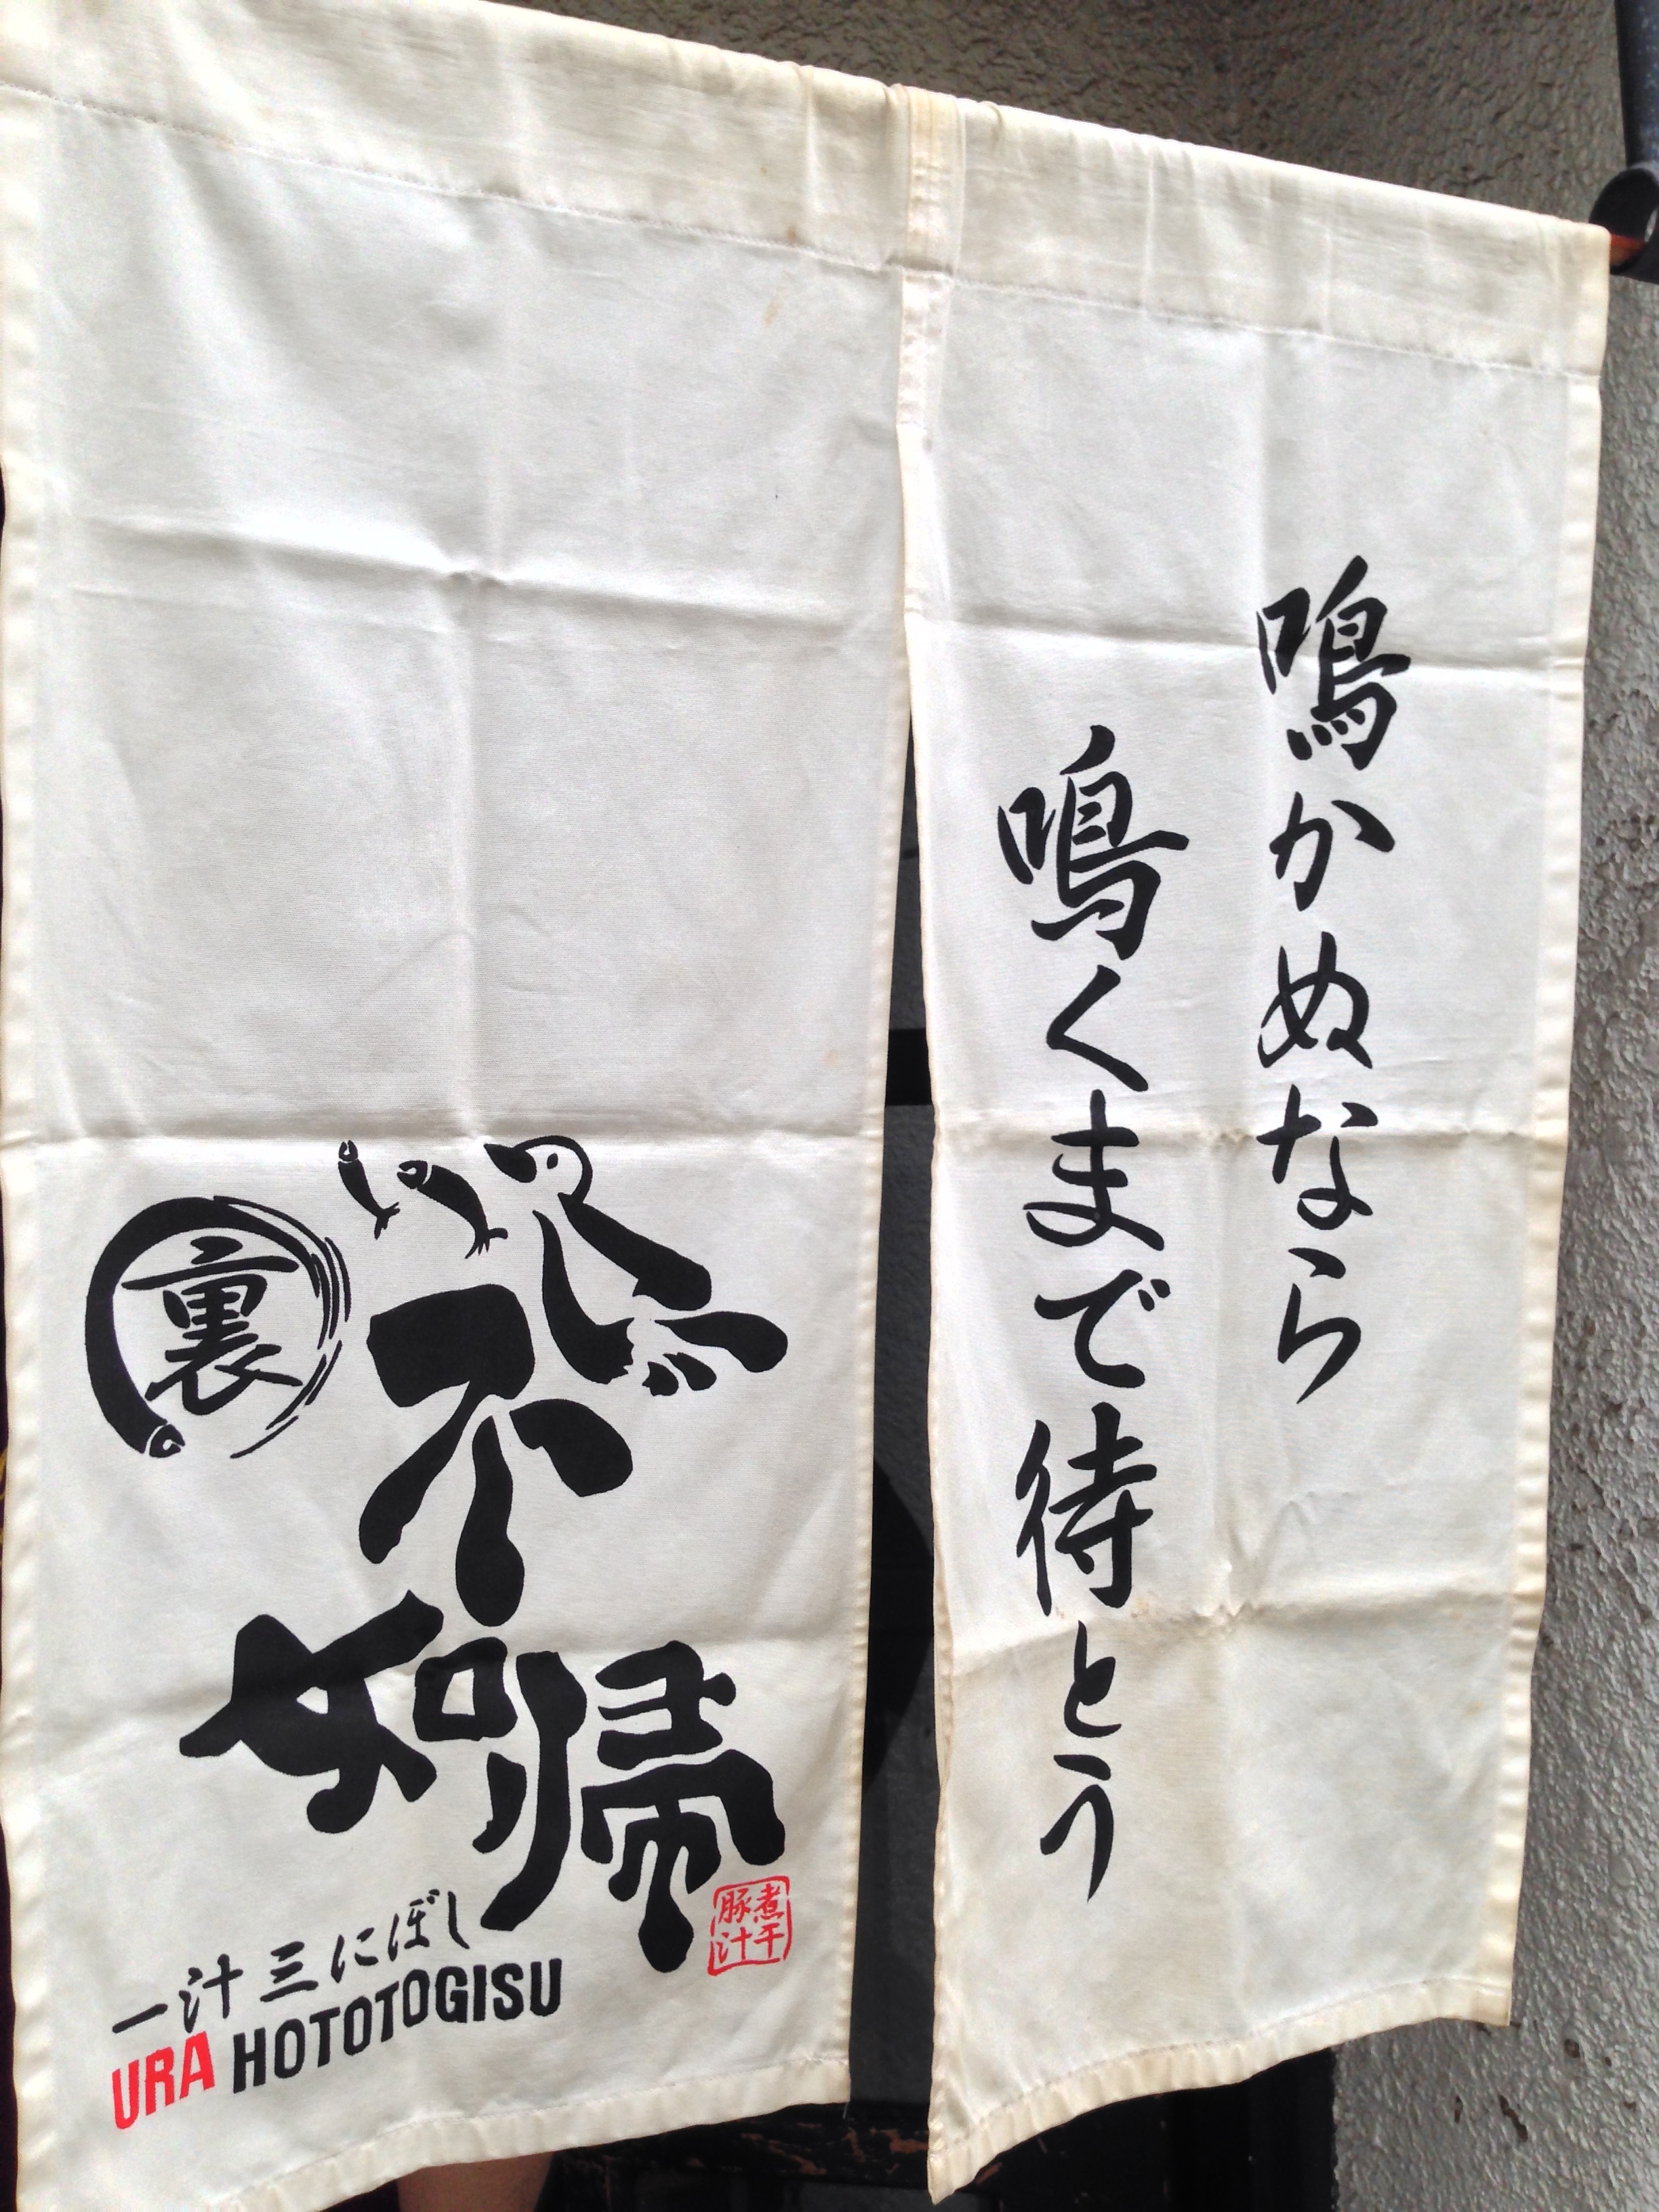 鳴かぬなら
鳴くまで待とう
裏
不
如帰
煮干
豚汁
一汁三にぼし
URA HOTOTOGISU